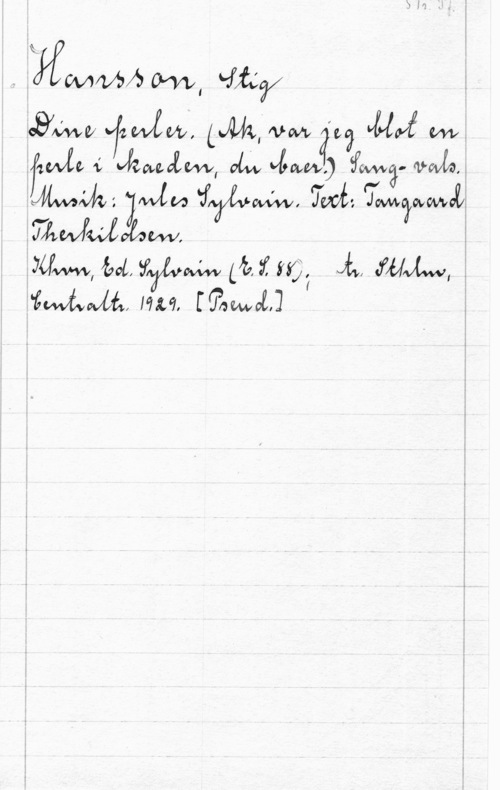 Hansson, Stig
Dine perler. (Ak, var jeg blot en
perle i kaeden, du baer!) Sang-vals.
Musik: Jules Sylvain. Text: Taugaard
Therkildsen.
Khvn, Ed. Sylvain (E. S. 88); tr. Sthlm,
Centraltr. 1929. [Pseud.]